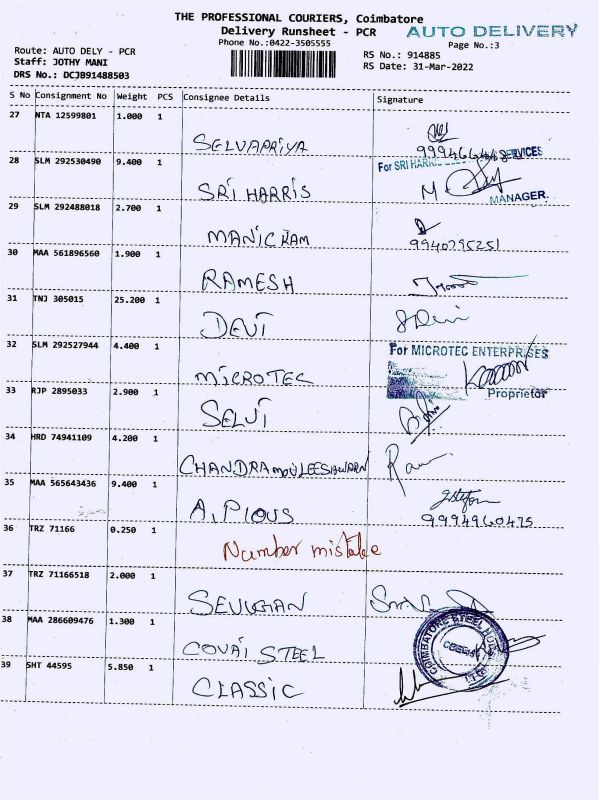 THE PROFESSIONAL COURIERS, Coimbatore
Delivery Runsheet - PCR
AUTO DELIVERY
Phone No.:0422-3505555
Page No.:3
Route: AUTO DELY - PCR
RS No.: 914885
Staff: JOTHY MANI
RS Date: 31-Mar-2022
DRS No.: DCJB91488503
S No Consignment No Weight PCS Consignee Details Signature
27 NTA 12599801 1.000 1
SELVAPRIYA
SERVICES
28 SLM 292530490 9.400 1 For SRI HARRIS
SRI HARRIS M
MANAGER
29 SLM 292488018 2.700 1
MANICKAM 9940795251
30 MAA 561896560 1.900 1
RAMESH
31 TNJ 305015 25.200 1
DEVI
32 SLM 292527944 4.400 1 For MICROTEC ENTERPRISES
MICROTEC Proprietor
33 RJP 2895033 2.900 1
SELVI
34 HRD 74941109 4.200 1
CHANDRAMOULEESHWARN
35 MAA 565643436 9.400 1
A.PIOUS 9994960475
36 TRZ 71166 0.250 1
Number mistake
37 TRZ 71166518 2.000 1
SEVUGHAN
38 MAA 286609476 1.300 1
COVAI STEEL
39 SHT 44595 5.850 1
CLASSIC